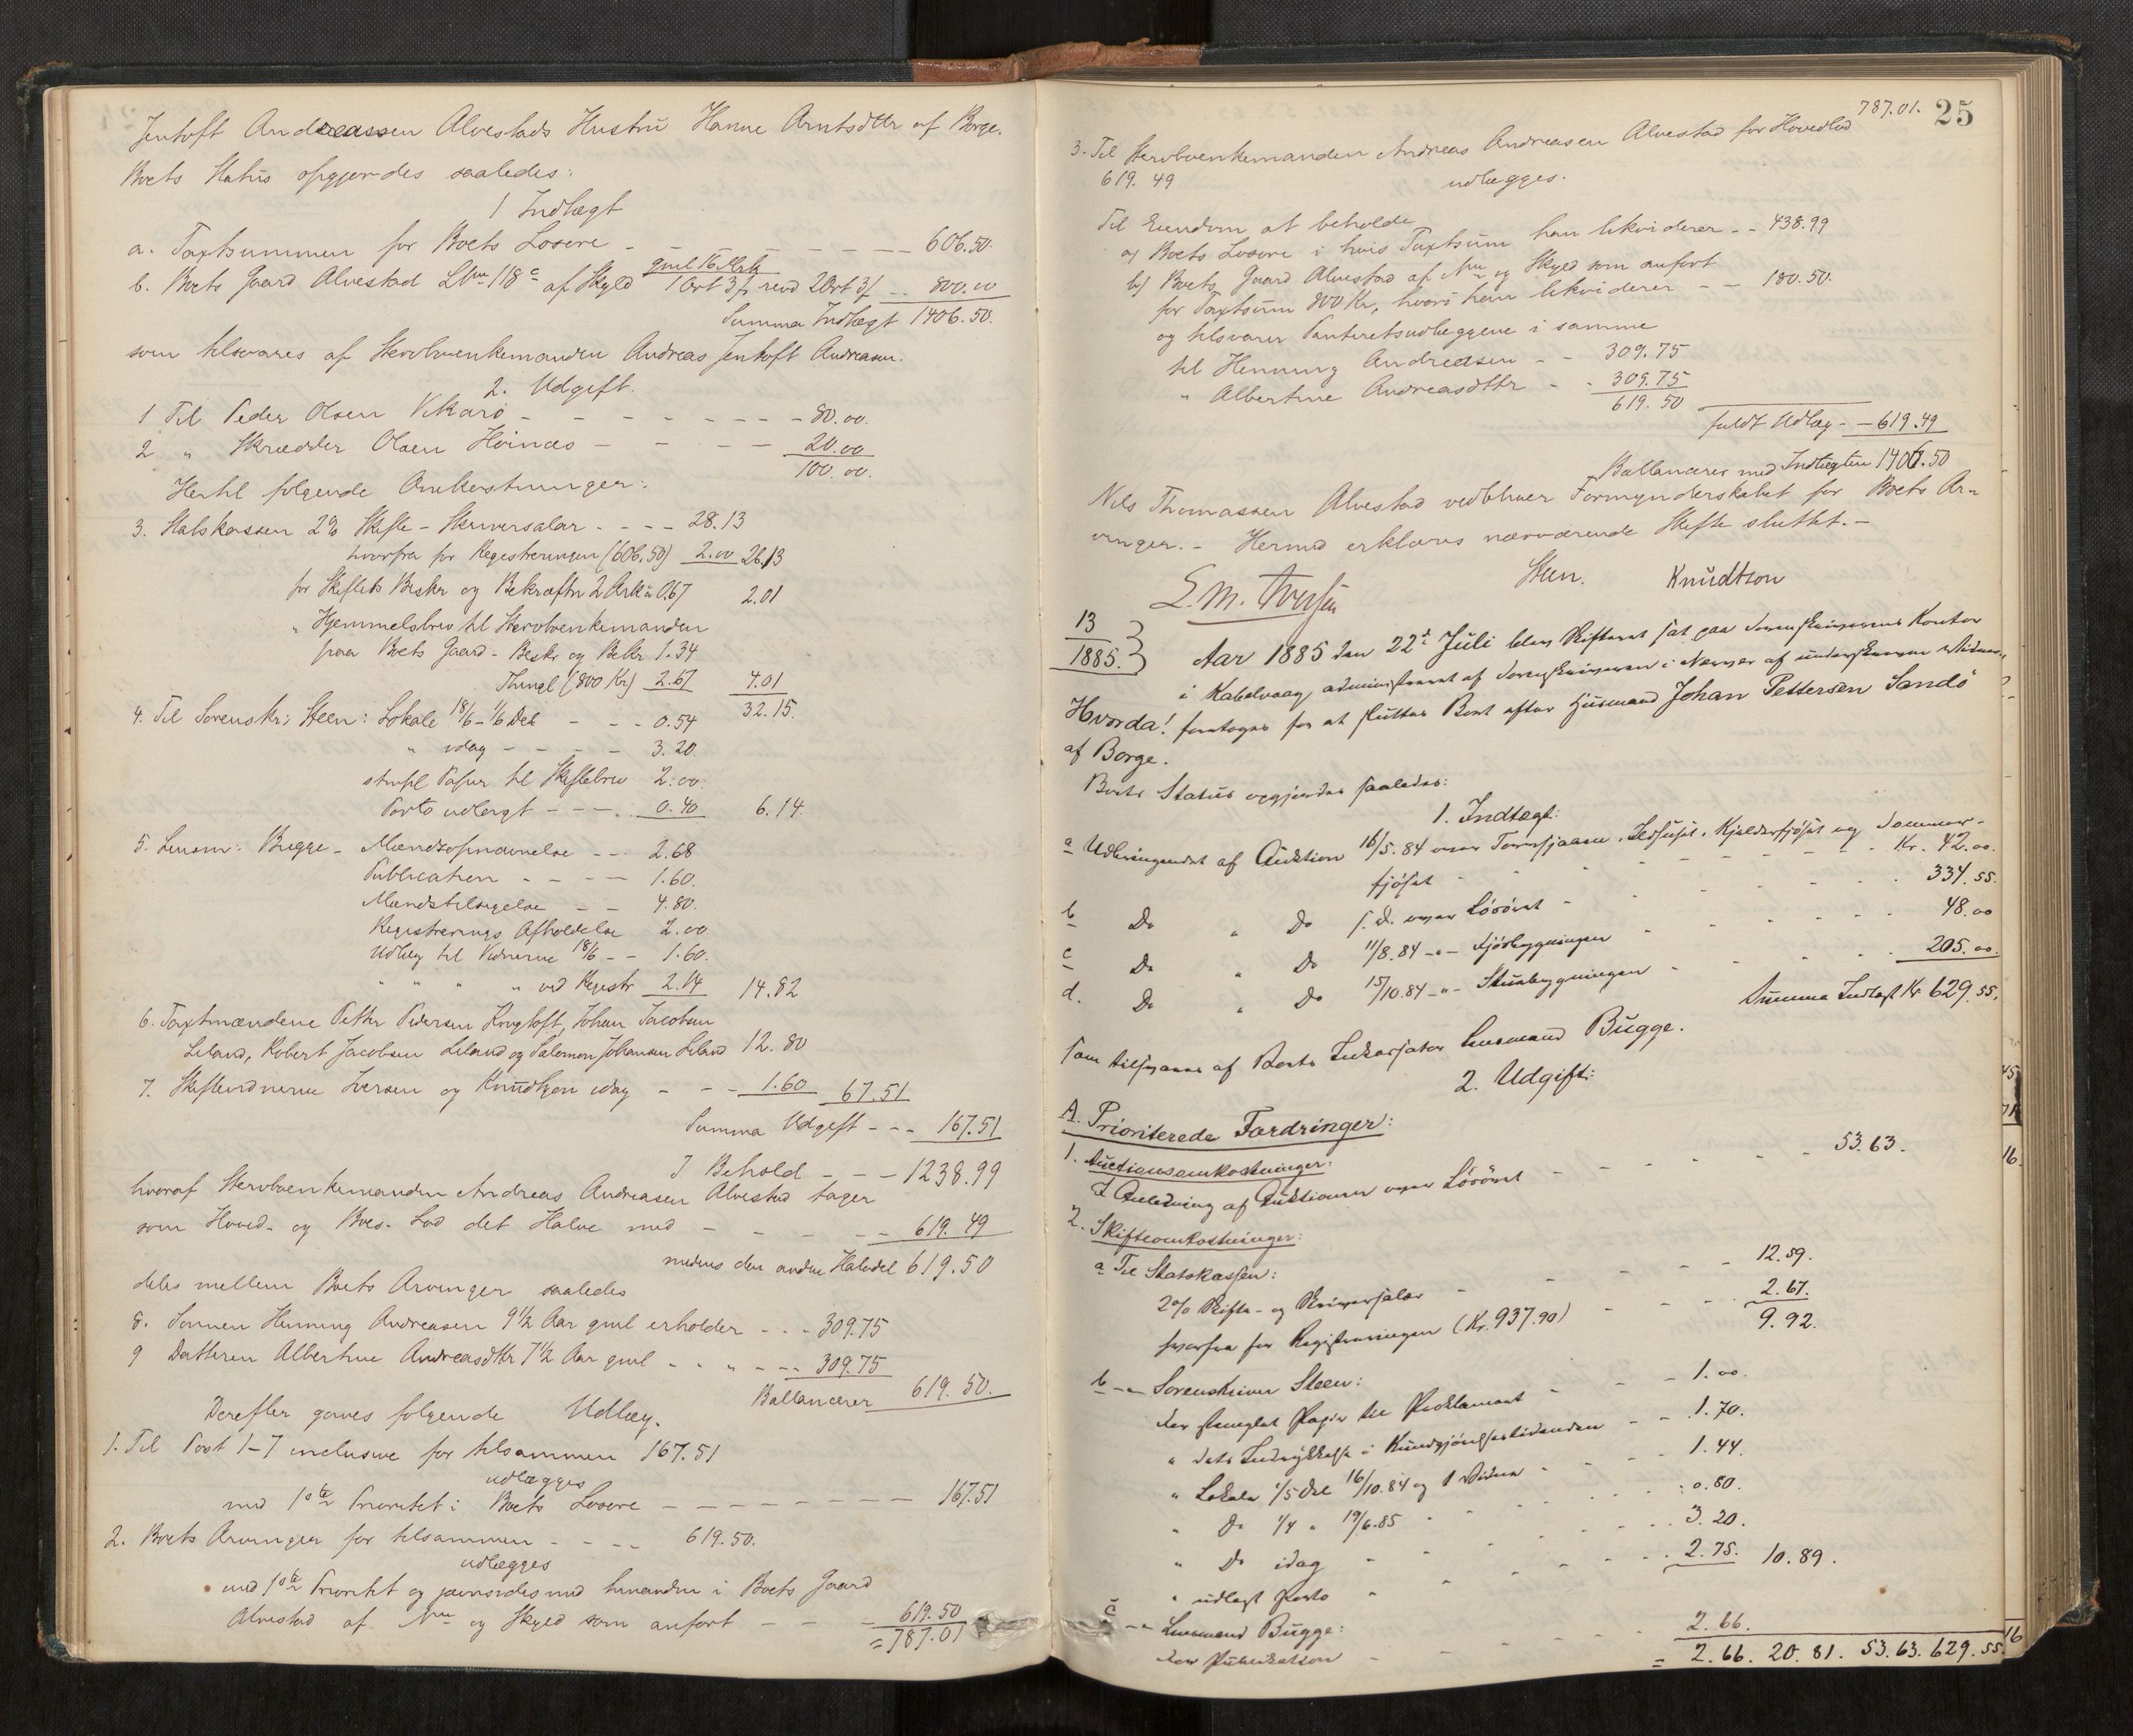 Jentoft Andreassen Alvestads Hustru Hanne Arntsdttr af Borge.
Boets Status opgjordes saaledes:
1 Indtægt
a. Taxtsummen for Boets Løsøre - - - - - - 606.50.
gml 16 Mrk
b. Boets Gaard Alvestad LNr 118c af Skyld 1 Ort 3 f revd 2 Ort 3 f - - 800.00
Summa Indtægt 1406.50.
som tilsvares af Stervboenkemanden Andreas Jentoft Andreasen.
2. Udgift.
1 Til Peder Olsen Vikarø - - - - - - - 80.00.
2 " Skrædder Olsen Høinæs - - - - 20.00
100.00.
Hertil følgende Omkostninger:
3. Statskassen 2% Skifte-Skriversalær - - - - 28.13
hvorfra for Registreringen (606.50) 2.00 26.13
for Skiftets Beskr og Bekræftn 2 Ark a 0.67 2.01
" Hjemmelsbrev til Stervboenkemanden
paa Boets Gaard - Beskr og Bekr. 1.34
Thingl (800 Kr) 2.67 4.01
32.15.
4. Til Sorenskr: Steen: Lokale 18/6 - 1/6 Del - - - 0.54
" idag - - - - 3.20.
stmpl Papir til Skiftebrev 2.00.
Porto udlagt - - - . 0.40 6.14.
5. Lensm: Bugge - Mændsopnævnelse - - 2.68
Publication - - - - 1.60.
Mændstilsigelse - - 4.80.
Registrerings Afholdelse 2.00
Udlæg til Vidnerne 18/6 - - 1.60.
" " " " ved Registr 2.14 14.82
6. Taxtmændene Petter Pedersen Kongtoft, Johan Jacobsen
Leland, Robert Jacobsen Leland og Salomon Johansen Leland 12.80
7. Skiftevidnerne Iversen og Knudtzon idag - - - 1.60 67.51
Summa Udgift - - - 167.51
I Behold - - - 1238.99
hvoraf Stervboenkemanden Andreas Andreasen Alvestad tager
som Hoved- og Boes-Lod det Halve med - - - - - 619.49
medens den anden Halvdel 619.50
deles mellem Boets Arvinger saaledes
8. Sønnen Henning Andreasen 9 1/2 Aar gml erholder - - - 309.75
9 Datteren Albertine Andreasdttr 7 1/2 Aar gml - - " - - - 309.75
Ballancerer 619.50.
Derefter gaves følgende Udlæg.
1. Til Post 1-7 inclusive for tilsammen 167.51
udlægges
med 1ste Prioritet i Boets Løsøre - - - - - - - - 167.51
2. Boets Arvinger for tilsammen - - - - 619.50.
udlægges
med 1ste Prioritet og jævnsides med hinanden i Boets Gaard
Alvestad af Nr og Skyld som anført - - - 619.50
= 787.01
787.01. 25
3. Til Stervboenkemanden Andreas Andreasen Alvestad for Hovedlod
619.49 udlægges.
Til Eiendom at beholde
a) Boets Løsøre i hvis Taxtsum han likviderer - - 438.99
b) Boets Gaard Alvestad af Nr og Skyld som anført
for Taxtsum 800 Kr, hvori han likviderer - - 180.50.
og tilsvarer Panteretsudlæggene i samme
til Henning Andreasen - - 309.75
" Albertine Andreasdttr - - 309.75
619.50
fuldt Udlæg - - 619.49
Ballancerer med Indtægten 1406.50
Nils Thomassen Alvestad vedbliver Formynderskabet for Boets Ar-
vinger. - Hermed erklæres nærværende Skifte sluttet. -
Steen. Knudtzon
E. M. Iversen
13
1885. } Aar 1885 den 22de Juli blev Skifteret sat paa Sorenskriverens Kontor
i Kabelvaag, administreret af Sorenskriveren i Nærvær af underskrevne Vidner,
Hvorda! foretoges for at sluttes Boet efter Husmand Johan Pettersen Sandø
af Borge.
Boets Status opgjordes saaledes:
1. Indtægt:
a Udbringendet af Auktion 16/5.84 over Tørrfjæsen, Ildhuset, Kjelderfjøset og Sommer-
fjøset - - - - - - Kr. 42.00.
b Do " Do s. D. over Løsøret - - - - - - 334.55.
c Do " Do 11/8.84 -"- Fjøsbygningen - - - - - 48.00
d. Do " Do 15/10.84 -"- Stuebygningen - - - - - 205.00.
Summa Indtægt Kr 629.55.
som tilsvares af Boets Inkassator Lensmand Bugge.
2. Udgift:
A. Prioriterede Fordringer:
1. Auctionsomkostninger:
I Anledning af Auktionen over Løsøret - - - - - - 53.63.
2. Skifteomkostninger:
a Til Statskassen:
2% Skifte- og Skriversalær - - - - - 12.59.
hvorfra for Registreringen (Kr. 937.90) - - - - 2.67.
9.92.
b -"- Sorenskriver Steen:
for stemplet Papir til Proklamaet - - - 1.00.
" dets Indrykkelse i Kundgjørelsestidenden - - 1.70.
" Lokale 1/5 Del 16/10.84 og 1 Vidne - - - 1.44.
" Do 1/4 " 19/6.85 - - - - 0.80.
" Do idag - - - - - 3.20.
" udlagt Porto - - - - - 2.75. 10.89.
c -"- Lensmand Bugge:
for Publikation - - - - - 2.66.
= 2.66. 20.81. 53.63. 629.55.